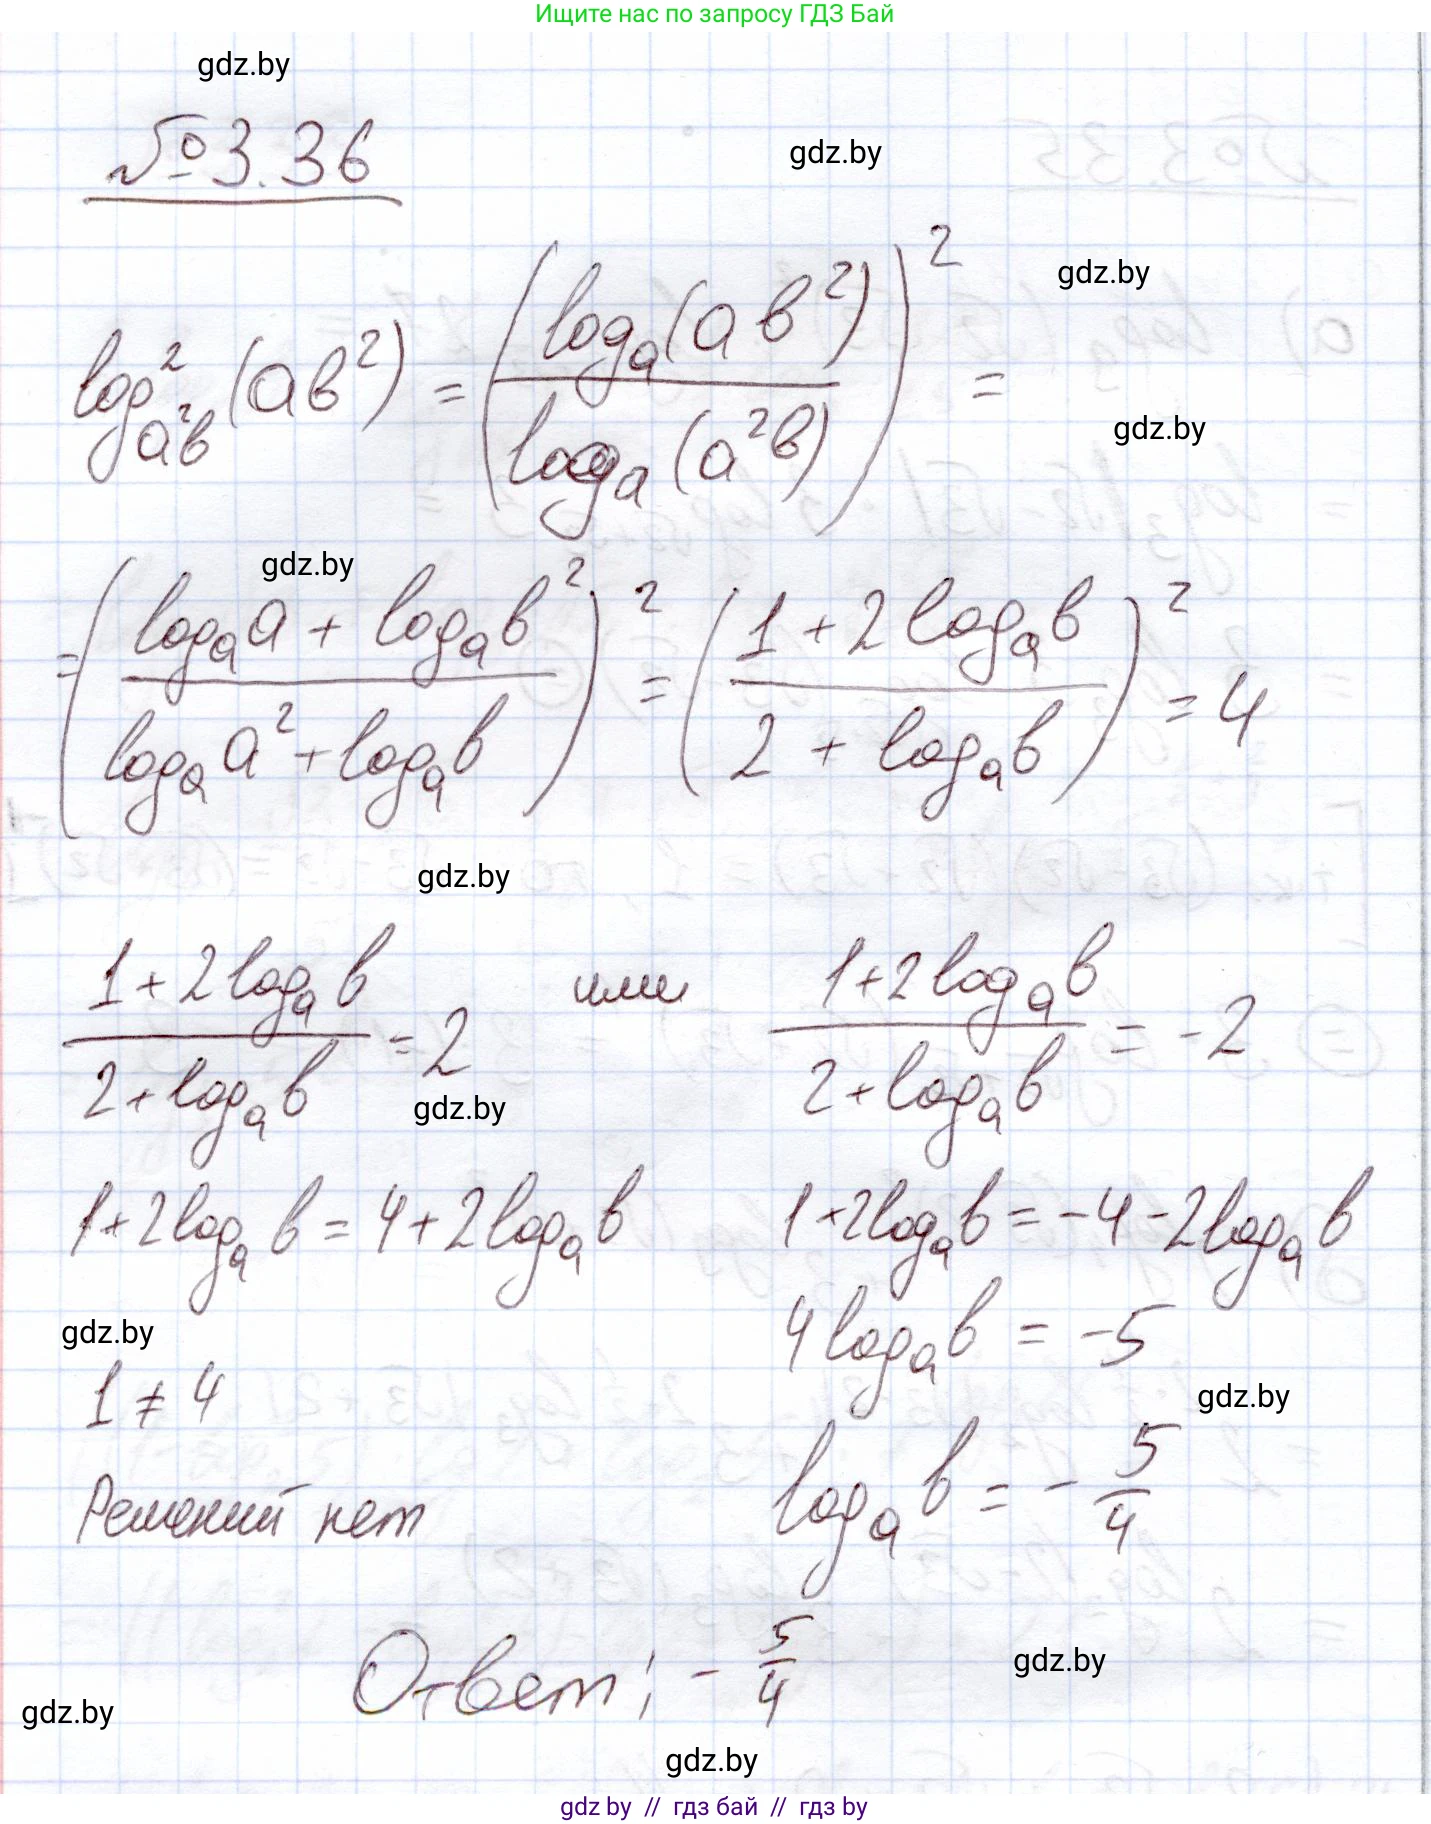 Ищите нас по запросу ГДЗ Бай
gdz.by
№ 3.36
gdz.by
gdz.by
log²_{a²b} (ab²) = (log_a(ab²) / log_a(a²b))² =
gdz.by
gdz.by
= ((log_a a + log_a b²) / (log_a a² + log_a b))² = ((1 + 2 log_a b) / (2 + log_a b))² = 4
gdz.by
(1 + 2 log_a b) / (2 + log_a b) = 2 или (1 + 2 log_a b) / (2 + log_a b) = -2
gdz.by
1 + 2 log_a b = 4 + 2 log_a b 1 + 2 log_a b = -4 - 2 log_a b
gdz.by
4 log_a b = -5
1 ≠ 4
gdz.by
log_a b = - 5/4
Решений нет
Ответ: - 5/4
gdz.by
gdz.by
gdz.by
gdz by // гдз бай // гдз by